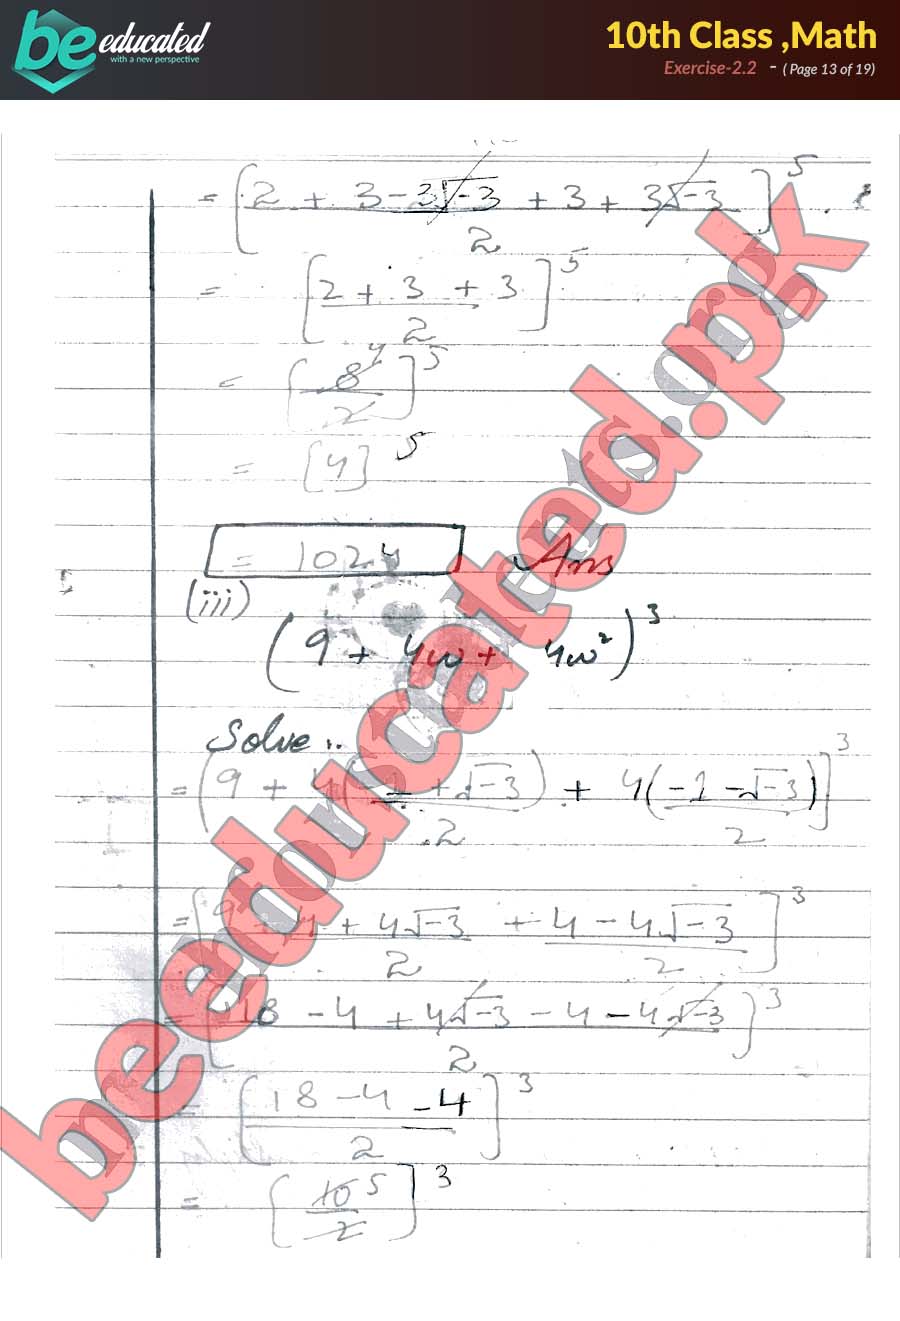 be educated
with a new perspective
10th Class ,Math
Exercise-2.2 - ( Page 13 of 19)
= [2 + 3 - 3√-3 + 3 + 3√-3 / 2]^5
= [2 + 3 + 3 / 2]^5
= [8 4 / 2]^5
= [4]^5
= 1024 Ans
(iii)
(9 + 4w + 4w²)³
Solve :.
= (9 + 4(-1 + √-3 / 2) + 4(-1 - √-3 / 2)]³
= [9 + 4 + 4√-3 / 2 + -4 - 4√-3 / 2]³
= [18 - 4 + 4√-3 - 4 - 4√-3 / 2]³
= [18 - 4 - 4 / 2]³
= [10 5 / 2]³
beeducated.pk